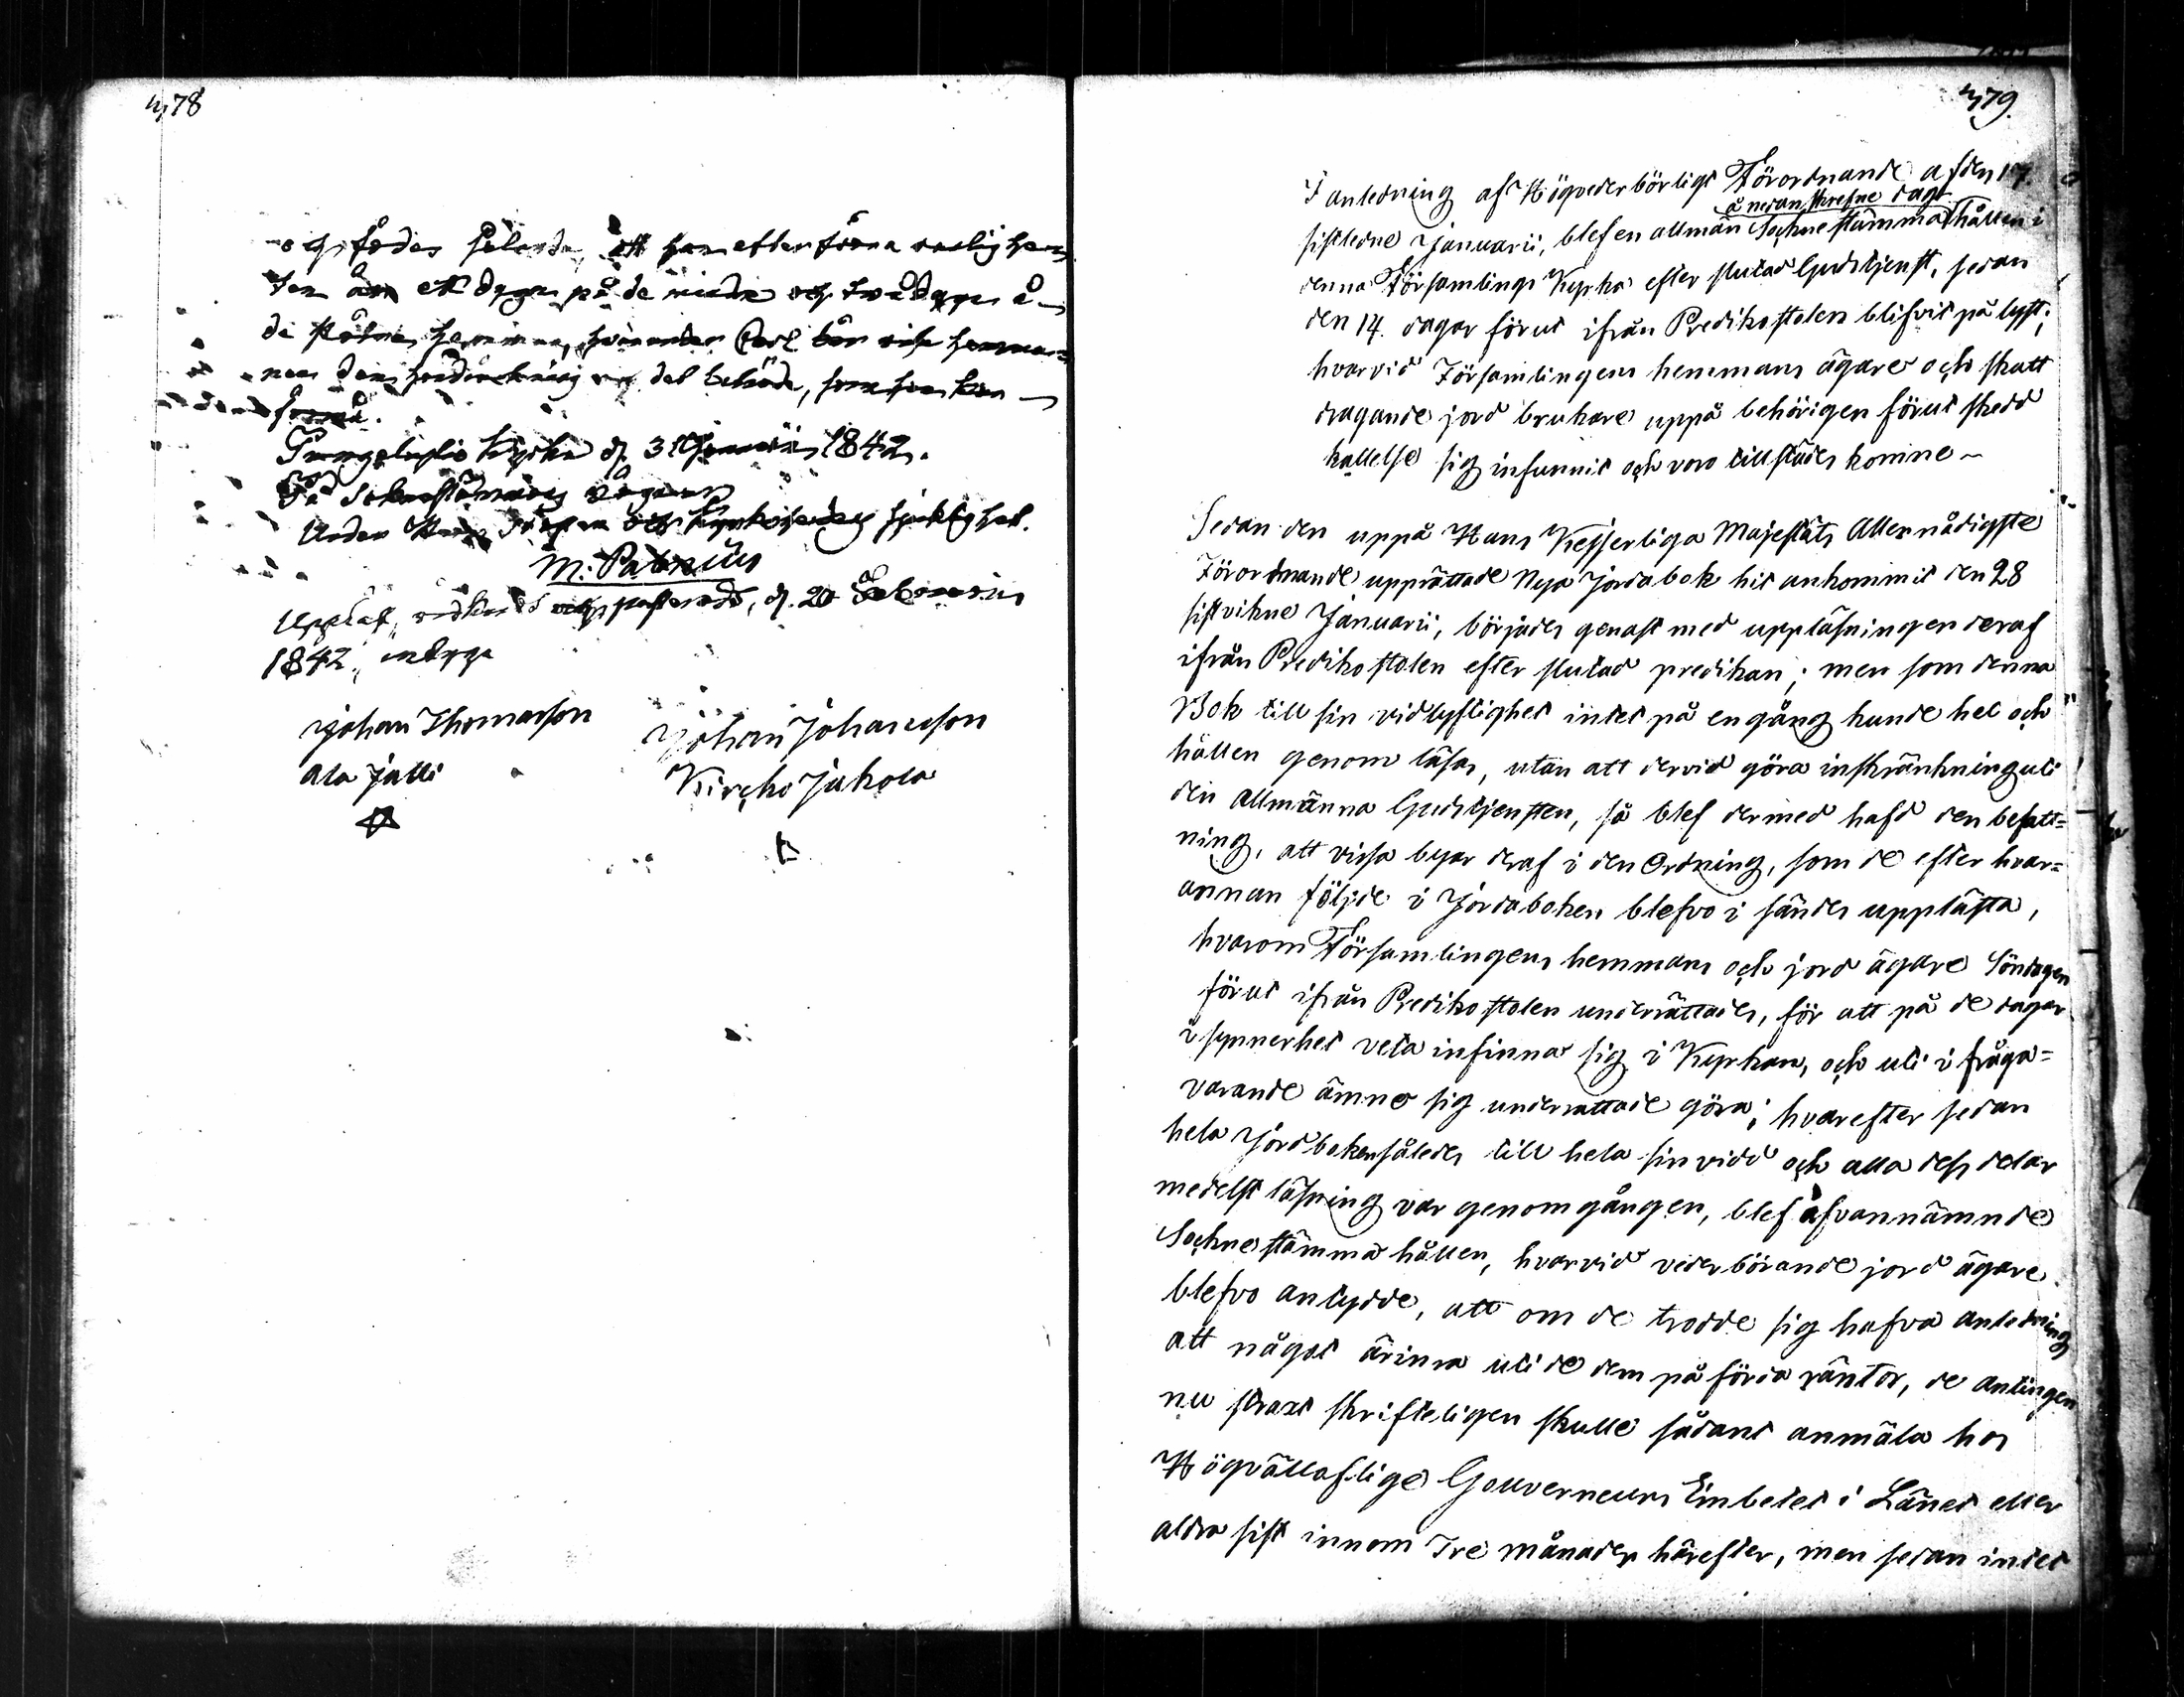 478
och födes således, att han efter förra vanligheten
ten är ett dygn på de mindre och två dygn å
de större hemman, hvarunder Carl bör visa hemma-
nen den handräckning och det biträde, som han kan
förmå.
kyrka d. 31 Januarii 1842.
På Sockenstämmans vägnar
Under Herr Probsten och Kyrkoherdens sjuklighet.
M: Pabenius
Uppläst, vidkänd och justerad, d. 20 Februarii
1842, intyga
Johan Thomasson Johan Johansson
Ala Jälli Kircko Jakola
479.
I anledning af Högvederbörligt Förordnande af den 17.
å nedanskrefne dag
sistledne Januarii, blef en allmän Sochnestämma hållen i
denna Församlings Kyrka efter slutad Gudstjenst, sedan
den 14. dagar förut ifrån Predikostolen blifvit pålyst;
hvarvid Församlingens hemmans ägare och skatt
dragande jord brukare uppå behörigen förut skedd
kallelse sig infunnit och voro tillstädes komne ~
Sedan den uppå Hans Kejserliga Majestäts Allernådigste
Förordnande upprättade Nya Jordabok hit ankommit den 28
sistvikne Januarii, börjades genast med uppläsningen deraf
ifrån Predikostolen efter slutad predikan; men som denna
Bok till sin vidlyftighet intet på en gång kunde hel och
hållen genom läsas, utan att dervid göra inskränkning uti
den allmänna Gudstjensten, så blef dermed hafd den befatt=
ning, att vissa byar deraf i den Ordning, som de efter hvar=
annan följde i Jordaboken blefvo i sänder upplästa,
hvarom Församlingens hemmans och jord ägare Söndagen
förut ifrån Predikostolen underrättades, för att på de dagar
i synnerhet veta infinna sig i Kyrkan, och uti i fråga=
varande ämne sig underrättade göra; hvarefter sedan
hela Jordboken således till hela sin vidd och alla dess delar
medelst läsning var genomgången, blef ofvannämnde
Sochnestämma hållen, hvarvid vederbörande jord ägare
blefvo antydde, att om de trodde sig hafva anledning
att något ärinra uti de dem påförda räntor, de antingen
nu straxt skrifteligen skulle sådant anmäla hos
Högvällaflige Gouverneurs Embetet i Länet eller
aldra sist innom Tre månader härefter, men sedan intet